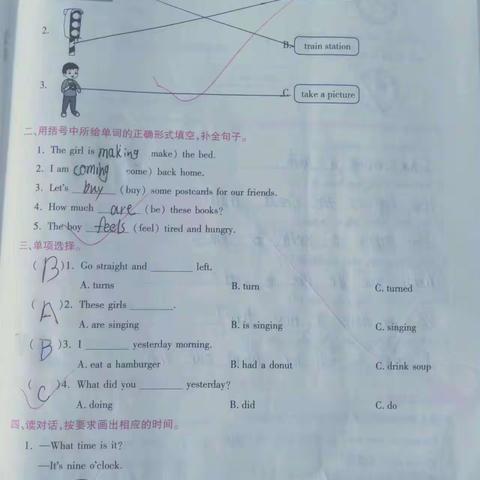 2.
B. train station
3.
C. take a picture
二、用括号中所给单词的正确形式填空,补全句子。
1. The girl is making make) the bed.
2. I am coming come) back home.
3. Let's buy (buy) some postcards for our friends.
4. How much are (be) these books?
5. The boy feels (feel) tired and hungry.
三、单项选择。
( B )1. Go straight and ________ left.
A. turns B. turn C. turned
( A )2. These girls ________.
A. are singing B. is singing C. singing
( B )3. I ________ yesterday morning.
A. eat a hamburger B. had a donut C. drink soup
( C )4. What did you ________ yesterday?
A. doing B. did C. do
四、读对话,按要求画出相应的时间。
1. —What time is it?
—It's nine o'clock.